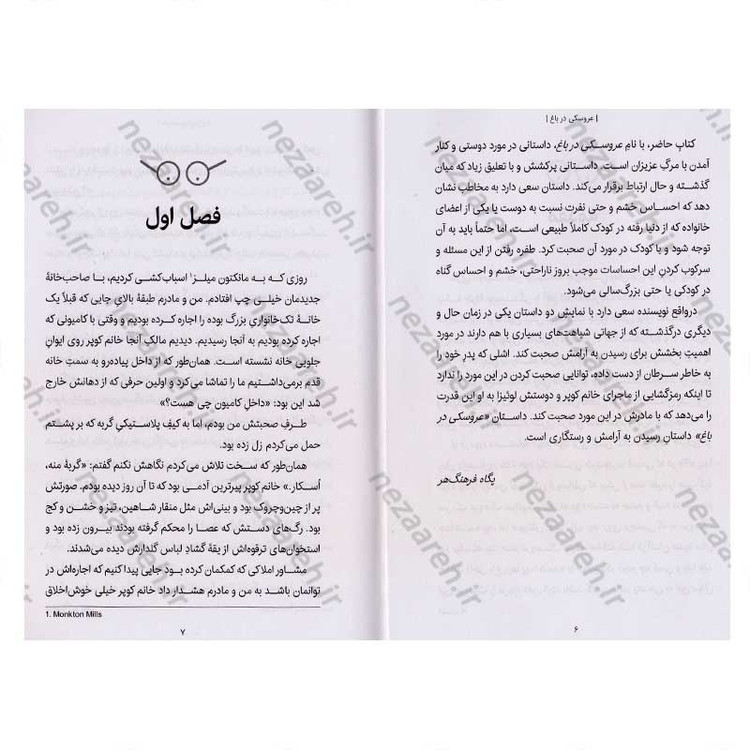 | عروسکی در باغ |
کتاب حاضر، با نام عروسکی در باغ، داستانی در مورد دوستی و کنار
آمدن با مرگ عزیزان است. داستانی پرکشش و با تعلیق زیاد که میان
گذشته و حال ارتباط برقرار می‌کند. داستان سعی دارد به مخاطب نشان
دهد که احساس خشم و حتی نفرت نسبت به دوست یا یکی از اعضای
خانواده که از دنیا رفته در کودک کاملاً طبیعی است، اما حتماً باید به آن
توجه شود و با کودک در مورد آن صحبت کرد. طفره رفتن از این مسئله و
سرکوب کردنِ این احساسات موجب بروز ناراحتی، خشم و احساس گناه
در کودکی یا حتی بزرگ‌سالی می‌شود.
درواقع نویسنده سعی دارد با نمایش دو داستان یکی در زمان حال و
دیگری درگذشته که از جهاتی شباهت‌های بسیاری با هم دارند در مورد
اهمیتِ بخشش برای رسیدن به آرامش صحبت کند. اشلی که پدرِ خود را
به خاطر سرطان از دست داده، توانایی صحبت کردن در این مورد را ندارد
تا اینکه رمزگشایی از ماجرای خانم کوپر و دوستش لوئیزا به او این قدرت
را می‌دهد که با مادرش در این مورد صحبت کند. داستان «عروسکی در
باغ» داستانِ رسیدن به آرامش و رستگاری است.
پگاه فرهنگ‌هر
۶
فصل اول
روزی که به مانکتون میلز۱ اسباب‌کشی کردیم، با صاحب‌خانهٔ
جدیدمان خیلی چپ افتادم. من و مادرم طبقهٔ بالای جایی که قبلاً یک
خانهٔ تک‌خانواری بزرگ بوده را اجاره کرده بودیم و وقتی با کامیونی که
اجاره کرده بودیم به آنجا رسیدیم. دیدیم مالکِ آنجا خانم کوپر روی ایوانِ
جلویی خانه نشسته است. همان‌طور که از داخل پیاده‌رو به سمتِ خانه
قدم برمی‌داشتیم ما را تماشا می‌کرد و اولین حرفی که از دهانش خارج
شد این بود: «داخلِ کامیون چی هست؟»
طرفِ صحبتش من بودم، اما به کیف پلاستیکیِ گربه که بر پشتم
حمل می‌کردم زل زده بود.
همان‌طور که سخت تلاش می‌کردم نگاهش نکنم گفتم: «گربهٔ منه،
اُسکار.» خانم کوپر پیرترین آدمی بود که تا آن روز دیده بودم. صورتش
پر از چین‌وچروک بود و بینی‌اش مثل منقار شاهین، تیز و خشن و کج
بود. رگ‌های دستش که عصا را محکم گرفته بودند بیرون زده بود و
استخوان‌های ترقوه‌اش از یقهٔ گشادِ لباس گلدارش دیده می‌شدند.
مشاور املاکی که کمکمان کرده بود جایی پیدا کنیم که اجاره‌اش در
توانمان باشد به من و مادرم هشدار داد خانم کوپر خیلی خوش‌اخلاق
1. Monkton Mills
۷
nezaareh.ir